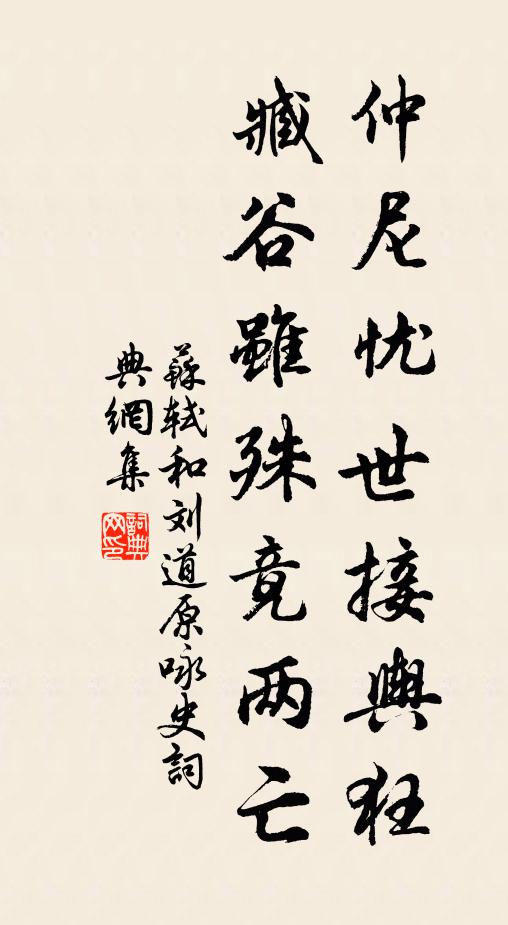 仲尼忧世接舆狂
臧谷虽殊竟两亡
蘇轼和刘道原咏史詞
典網集
詞典网印